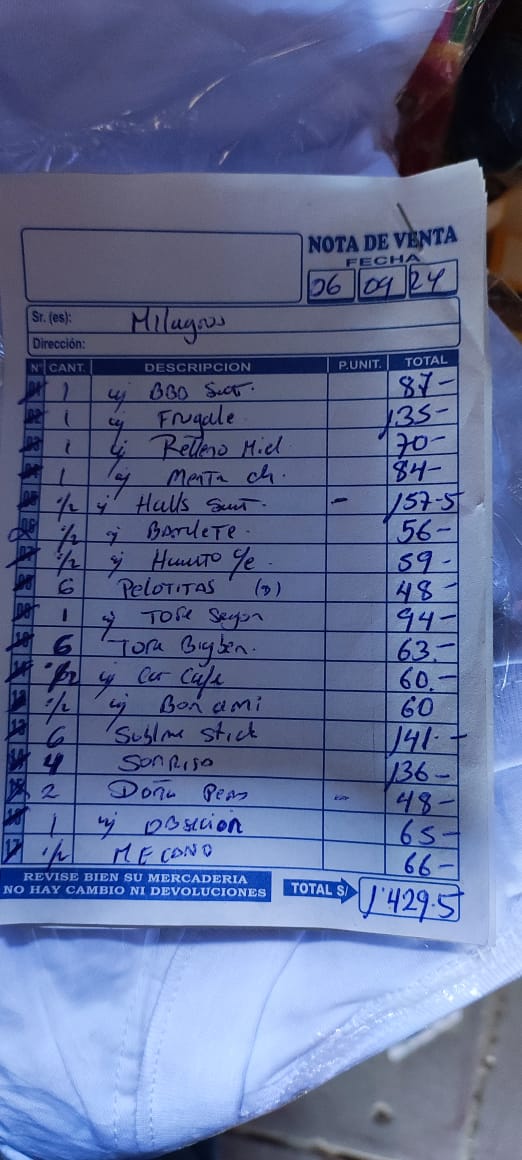 NOTA DE VENTA
FECHA
06 09 24
Sr. (es): Milagros
Dirección:
N° CANT. DESCRIPCION P.UNIT. TOTAL
01 1 cj BBO Surt. 87-
02 1 cj Frugale 135-
03 1 cj Relleno Miel 70-
04 1 cj Menta ch. 84-
05 1/2 cj Halls Surt. - 157-5
06 1/2 cj BARLETE. 56-
07 1/2 cj 59-
08 6 PELOTITAS (3) 48-
09 1 cj TOFE 94-
10 6 Tofe Bigben. 63.-
11 1/2 cj Car Cafe 60.-
12 1/2 cj Bon ami 60
13 6 Sublime Stick 141.-
14 4 SONRISO 136-
15 2 Doña Pepas - 48-
16 1 cj OBSECION 65-
17 1/2 MECANO 66-
REVISE BIEN SU MERCADERIA
NO HAY CAMBIO NI DEVOLUCIONES
TOTAL S/ 1'429.5